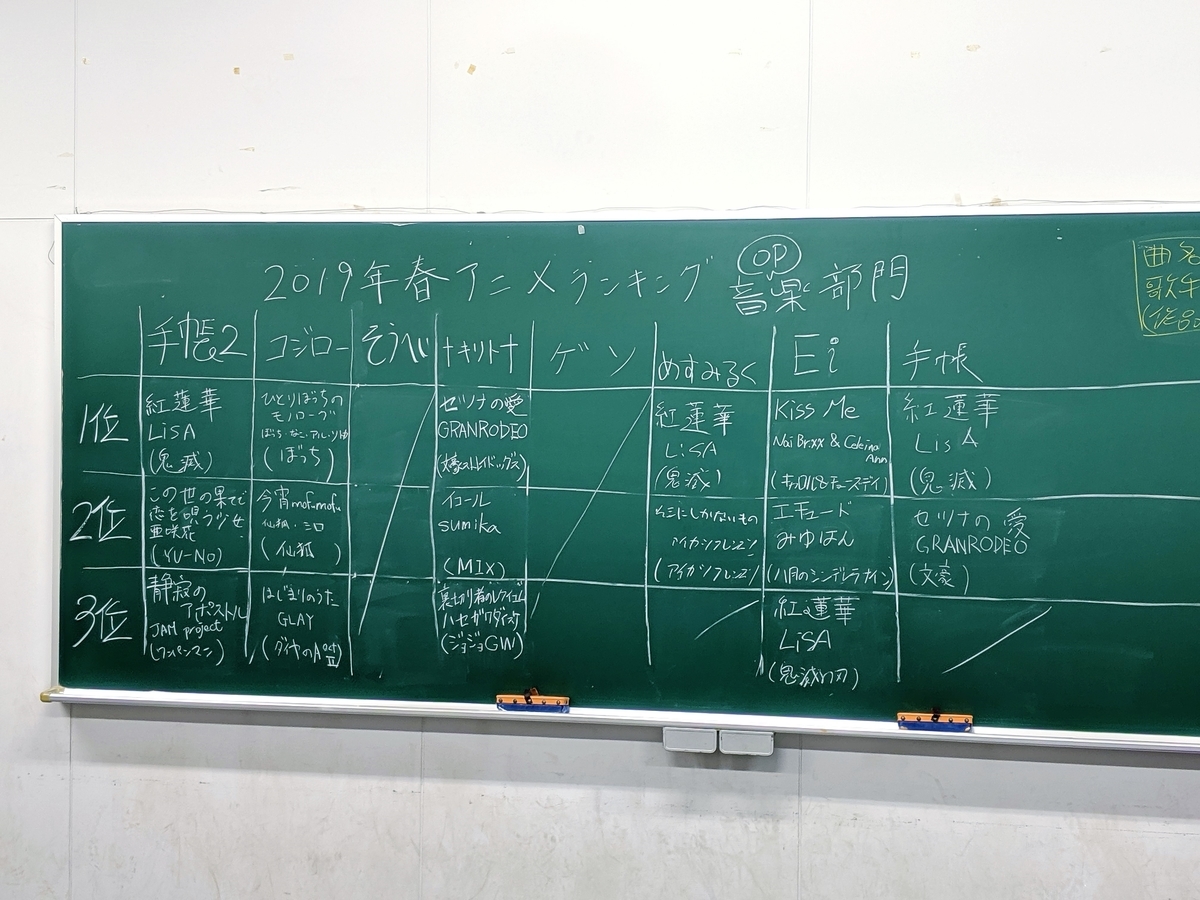 2019年春アニメランキング 音楽部門
OP
曲名
歌手
(作品
手帳2 コジロー そうへい ナキリトナ ゲソ めすみるく Ei 手帳
1位
紅蓮華
LiSA
(鬼滅)
ひとりぼっちの
モノローグ
ぼっち・なこ・アル・ソトカ
(ぼっち)
セツナの愛
GRANRODEO
(文豪ストレイドッグス)
紅蓮華
LiSA
(鬼滅)
Kiss Me
Nai Brxx & Celeina
Ann
(キャロル&チューズデイ)
紅蓮華
LisA
(鬼滅)
2位
この世の果てで
恋を唄う少女
亜咲花
(YU-NO)
今宵mofumofu
仙狐・シロ
(仙狐)
イコール
sumika
(MIX)
そこにしかないもの
アイカツフレンズ
(アイカツフレンズ)
エチュード
みゆはん
(八月のシンデレラナイン)
セツナの愛
GRANRODEO
(文豪)
3位
静寂の
アポストル
JAM project
(ワンパンマン)
はじまりのうた
GLAY
(ダイヤのA act
II)
裏切り者のレクイエム
ハセガワダイスケ
(ジョジョGW)
紅蓮華
LiSA
(鬼滅の刃)